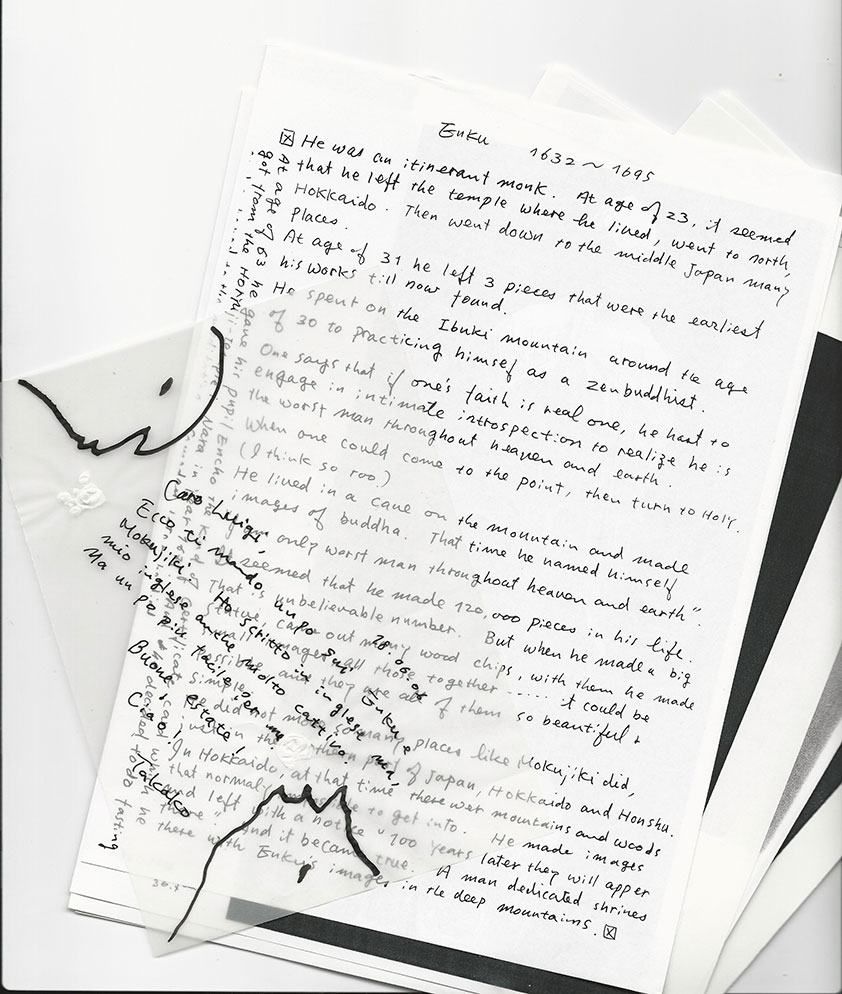 Enku 1632 ~ 1695
He was an itinerant monk. At age of 23, it seemed
that he left the temple where he lived, went to north,
Hokkaido. Then went down to the middle Japan many
places.
At age of 31 he left 3 pieces that were the earliest
his works till now found.
He spent on the Ibuki mountain around the age
of 30 to practicing himself as a zen buddhist.
One says that if one's faith is real one, he hast to
engage in intimate introspection to realize he is
the worst man throughout heaven and earth.
When one could come to the point, then turn to Holy.
(I think so too)
He lived in a cave on the mountain and made
images of buddha. That time he named himself
only worst man throughout heaven and earth".
It seemed that he made 120,000 pieces in his life.
That is unbelievable number. But when he made a big
statue, came out many wood chips, with them he made
small images all those together ...... it could be
possible and they are all of them so beautiful +
simple
He did not so many places like Mokujiki did,
in the northern part of Japan, Hokkaido and Honshu.
In Hokkaido, at that time there wer mountains and woods
that normal to get into. He made images
and left with a notice "100 years later they will apper
there" and it became true. A man dedicated shrines
there with Enku's images in the deep mountains.
At age of 63 he gave his pupil Encho
got from the Horyuji-Temple Nara in
decided to do fasting
28.06.01
Caro Luigi,
Ecco ti mando un po' sui Enku e
Mokujiki. Ho scritto in inglese ma,
mio inglese anche molto cattivo.
Ma un po' più facile per me
Buone Estate!
Ciao,
Takako